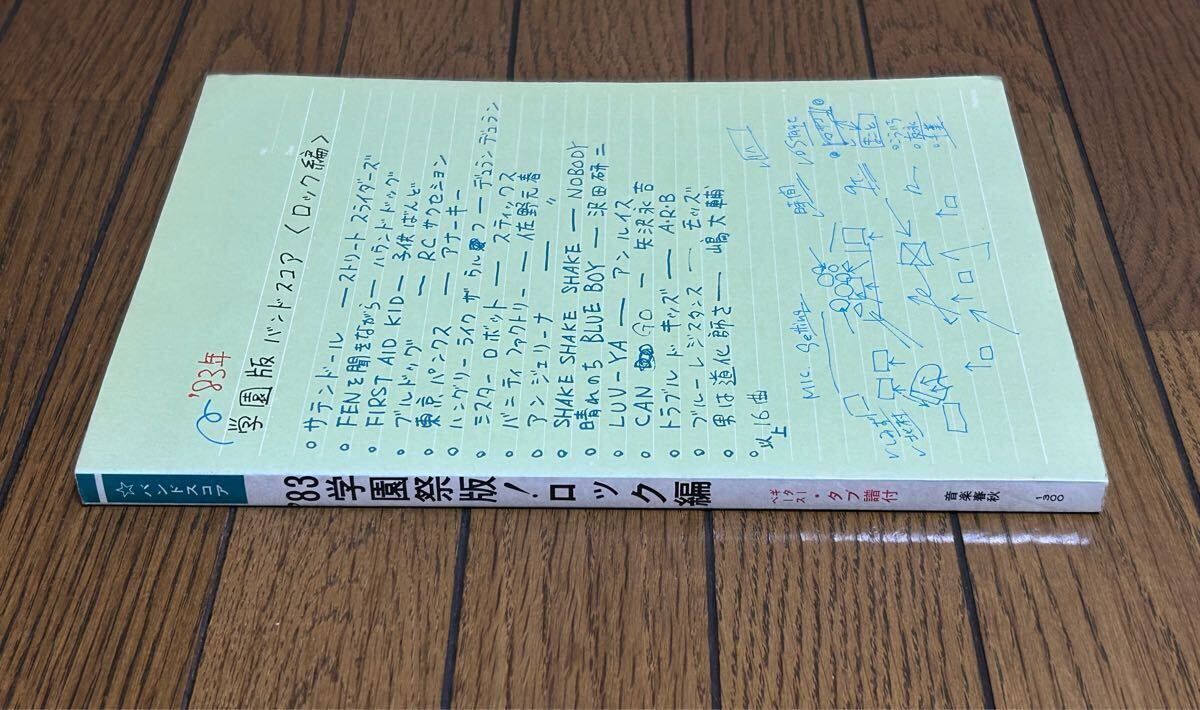 '83年
学園版 バンドスコア 〈ロック編〉
○ サテンドール — ストリートスライダーズ
○ FENを聞きながら — ハウンドドッグ
○ FIRST AID KID — 子供ばんど
○ ブルドッグ — RCサクセション
○ 東京パンクス — アナーキー
○ ハングリーライクザウルフ — デュランデュラン
○ ミスターロボット — スティックス
○ バニティファクトリー — 佐野元春
○ アンジェリーナ — 〃
○ SHAKE SHAKE SHAKE — NOBODY
○ 晴れのちBLUE BOY — 沢田研二
○ LUV-YA — アンルイス
○ CAN GO — 矢沢永吉
○ トラブルドキッズ — A・R・B
○ ブルーレジスタンス — モッズ
○ 男は道化師さ — 嶋大輔
○ 以上16曲
MIC. Setting
時間
Stage
☆バンドスコア
'83学園祭版！ロック編
ギター・ベース・タブ譜付
音楽春秋
1300